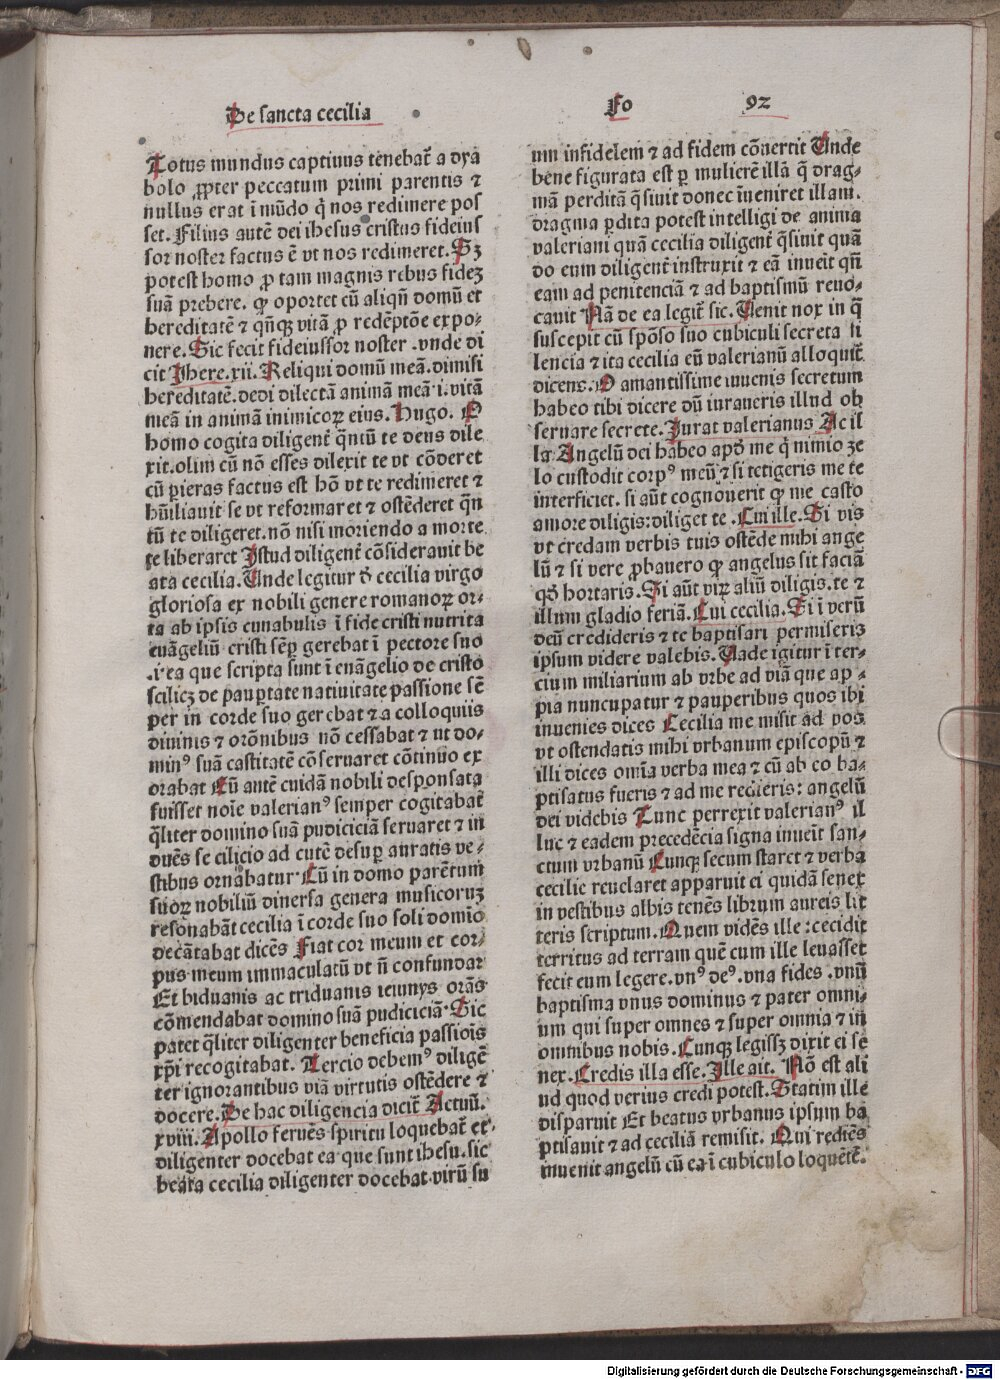 De sancta cecilia
Fo 92
Totus mundus captiuus tenebat̃ a dya
bolo ꝓpter peccatum primi parentis ⁊
nullus erat ĩ mũdo q̃ nos redimere pos
set. Filius autẽ dei ihesus cristus fideius
sor noster factus ẽ vt nos redimeret. Sꝫ
potest homo ꝓ tam magnis rebus fideꝫ
suã prebere. ꝙ oportet cũ aliqñ domũ et
hereditatẽ ⁊ qñqꝫ vitã ꝓ redẽptõe expo⸗
nere. Sic fecit fideiussor noster .vnde di
cit Jhere.xii. Reliqui domũ meã. dimisi
hereditatẽ. dedi dilectã animã meã .i. vitã
meã in animã inimicoꝝ eius. Hugo. O
homo cogita diligent̃ qñtũ te deus dile
xit. olim cũ nõ esses dilexit te vt cõderet
cũ ꝑieras factus est hõ vt te redimeret ⁊
hũiliauit se vt reformaret ⁊ ostẽderet qñ
tũ te diligeret. nõ nisi moriendo a morte
te liberaret Jstud diligent̃ cõsiderauit be
ata cecilia. Unde legitur ď cecilia virgo
gloriosa ex nobili genere romanoꝝ or⸗
ta ab ipsis cunabulis ĩ fide cristi nutrita
euãgeliũ cristi sẽꝑ gerebat ĩ pectore suo
.i. ea que scripta sunt ĩ euãgelio de cristo
scilicꝫ de pauꝑtate natiuitate passione sẽ
per in corde suo gerebat ⁊ a colloquiis
diuinis ⁊ orõnibus nõ cessabat ⁊ ut do⸗
minꝰ suã castitatẽ cõseruaret cõtinuo ex
orabat Cũ autẽ cuidã nobili desponsata
fuisset noĩe valerianꝰ semper cogitabat̃
q̃liter domino suã pudiciciã seruaret ⁊ in
duẽs se cilicio ad cutẽ desuꝑ auratis ve⸗
stibus ornabatur. Cũ in domo parẽtum
suoꝝ nobiliũ diuersa genera musicoruꝫ
resonabãt cecilia ĩ corde suo soli domĩo
decãtabat dicẽs Fiat cor meum et cor⸗
pus meum immaculatũ vt ñ confundar
Et biduanis ac triduanis ieiunys orãs
cõmendabat domino suã pudiciciã. Sic
patet q̃liter diligenter beneficia passiõis
xp̃i recogitabat. Tercio debemꝰ diligẽ
ter ignorantibus viã virtutis ostẽdere ⁊
docere. De hac diligencia dicit̃ Actuũ.
xviii. Apollo feruẽs spiritu loquebat̃ et
diligenter docebat ea que sunt ihesu. sic
beata cecilia diligenter docebat virũ su
um infidelem ⁊ ad fidem cõuertit Unde
bene figurata est ꝑ mulierẽ illã q̃ drag⸗
mã perditã q̃siuit donec ĩueniret illam.
dragma ꝑdita potest intelligi de anima
valeriani quã cecilia diligent̃ q̃siuit quã
do eum diligent̃ instruxit ⁊ eã inueĩt qñ
eam ad penitenciã ⁊ ad baptismũ reuo⸗
cauit Nã de ea legit̃ sic. Uenit nox in q̃
suscepit cũ spõso suo cubiculi secreta si
lencia ⁊ ita cecilia eũ valerianũ alloquit̃
dicens. O amantissime iuuenis secretum
habeo tibi dicere dũ iuraueris illud ob
seruare secrete. Jurat valerianus Ac il
la Angelũ dei habeo apď me q̃ nimio ze
lo custodit corpꝰ meũ ⁊ si tetigeris me te
interficiet. si aũt cognouerit ꝙ me casto
amore diligis: diliget te .Cui ille. Si vis
vt credam verbis tuis ostẽde mihi ange
lũ ⁊ si vere ꝓbauero ꝙ angelus sit faciã
qď hortaris. Si aũt viꝝ aliũ diligis. te ⁊
illum gladio feriã. Cui cecilia. Si ĩ verũ
deũ credideris ⁊ te baptisari permiseris
ipsum videre valebis. Uade igitur ĩ ter⸗
cium miliarium ab vrbe ad viã que ap⸗
pia nuncupatur ⁊ pauperibus quos ibi
inuenies dices Cecilia me misit ad vos
vt ostendatis mihi vrbanum episcopũ ⁊
illi dices omĩa verba mea ⁊ cũ ab eo ba⸗
ptisatus fueris ⁊ ad me redieris: angelũ
dei videbis Tunc perrexit valerianꝰ il
luc ⁊ eadem precedẽcia signa inueĩt san⸗
ctum vrbanũ Cunqꝫ secum staret ⁊ verba
cecilie reuelaret apparuit ei quidã senex
in vestibus albis tenẽs librum aureis lit
teris scriptum. Quem vidẽs ille: cecidit
territus ad terram quẽ cum ille leuasset
fecit eum legere. vnꝰ deꝰ. vna fides .vnũ
baptisma vnus dominus ⁊ pater omni⸗
um qui super omnes ⁊ super omnia ⁊ in
omnibus nobis. Cunqꝫ legissꝫ dixit ei se
nex. Credis illa esse. Jlle ait. Nõ est ali
ud quod verius credi potest. Statim ille
disparuit Et beatus vrbanus ipsum ba
ptisauit ⁊ ad ceciliã remisit. Qui rediẽs
inuenit angelũ cũ ea ĩ cubiculo loquẽtẽ.
Digitalisierung gefördert durch die Deutsche Forschungsgemeinschaft - DFG